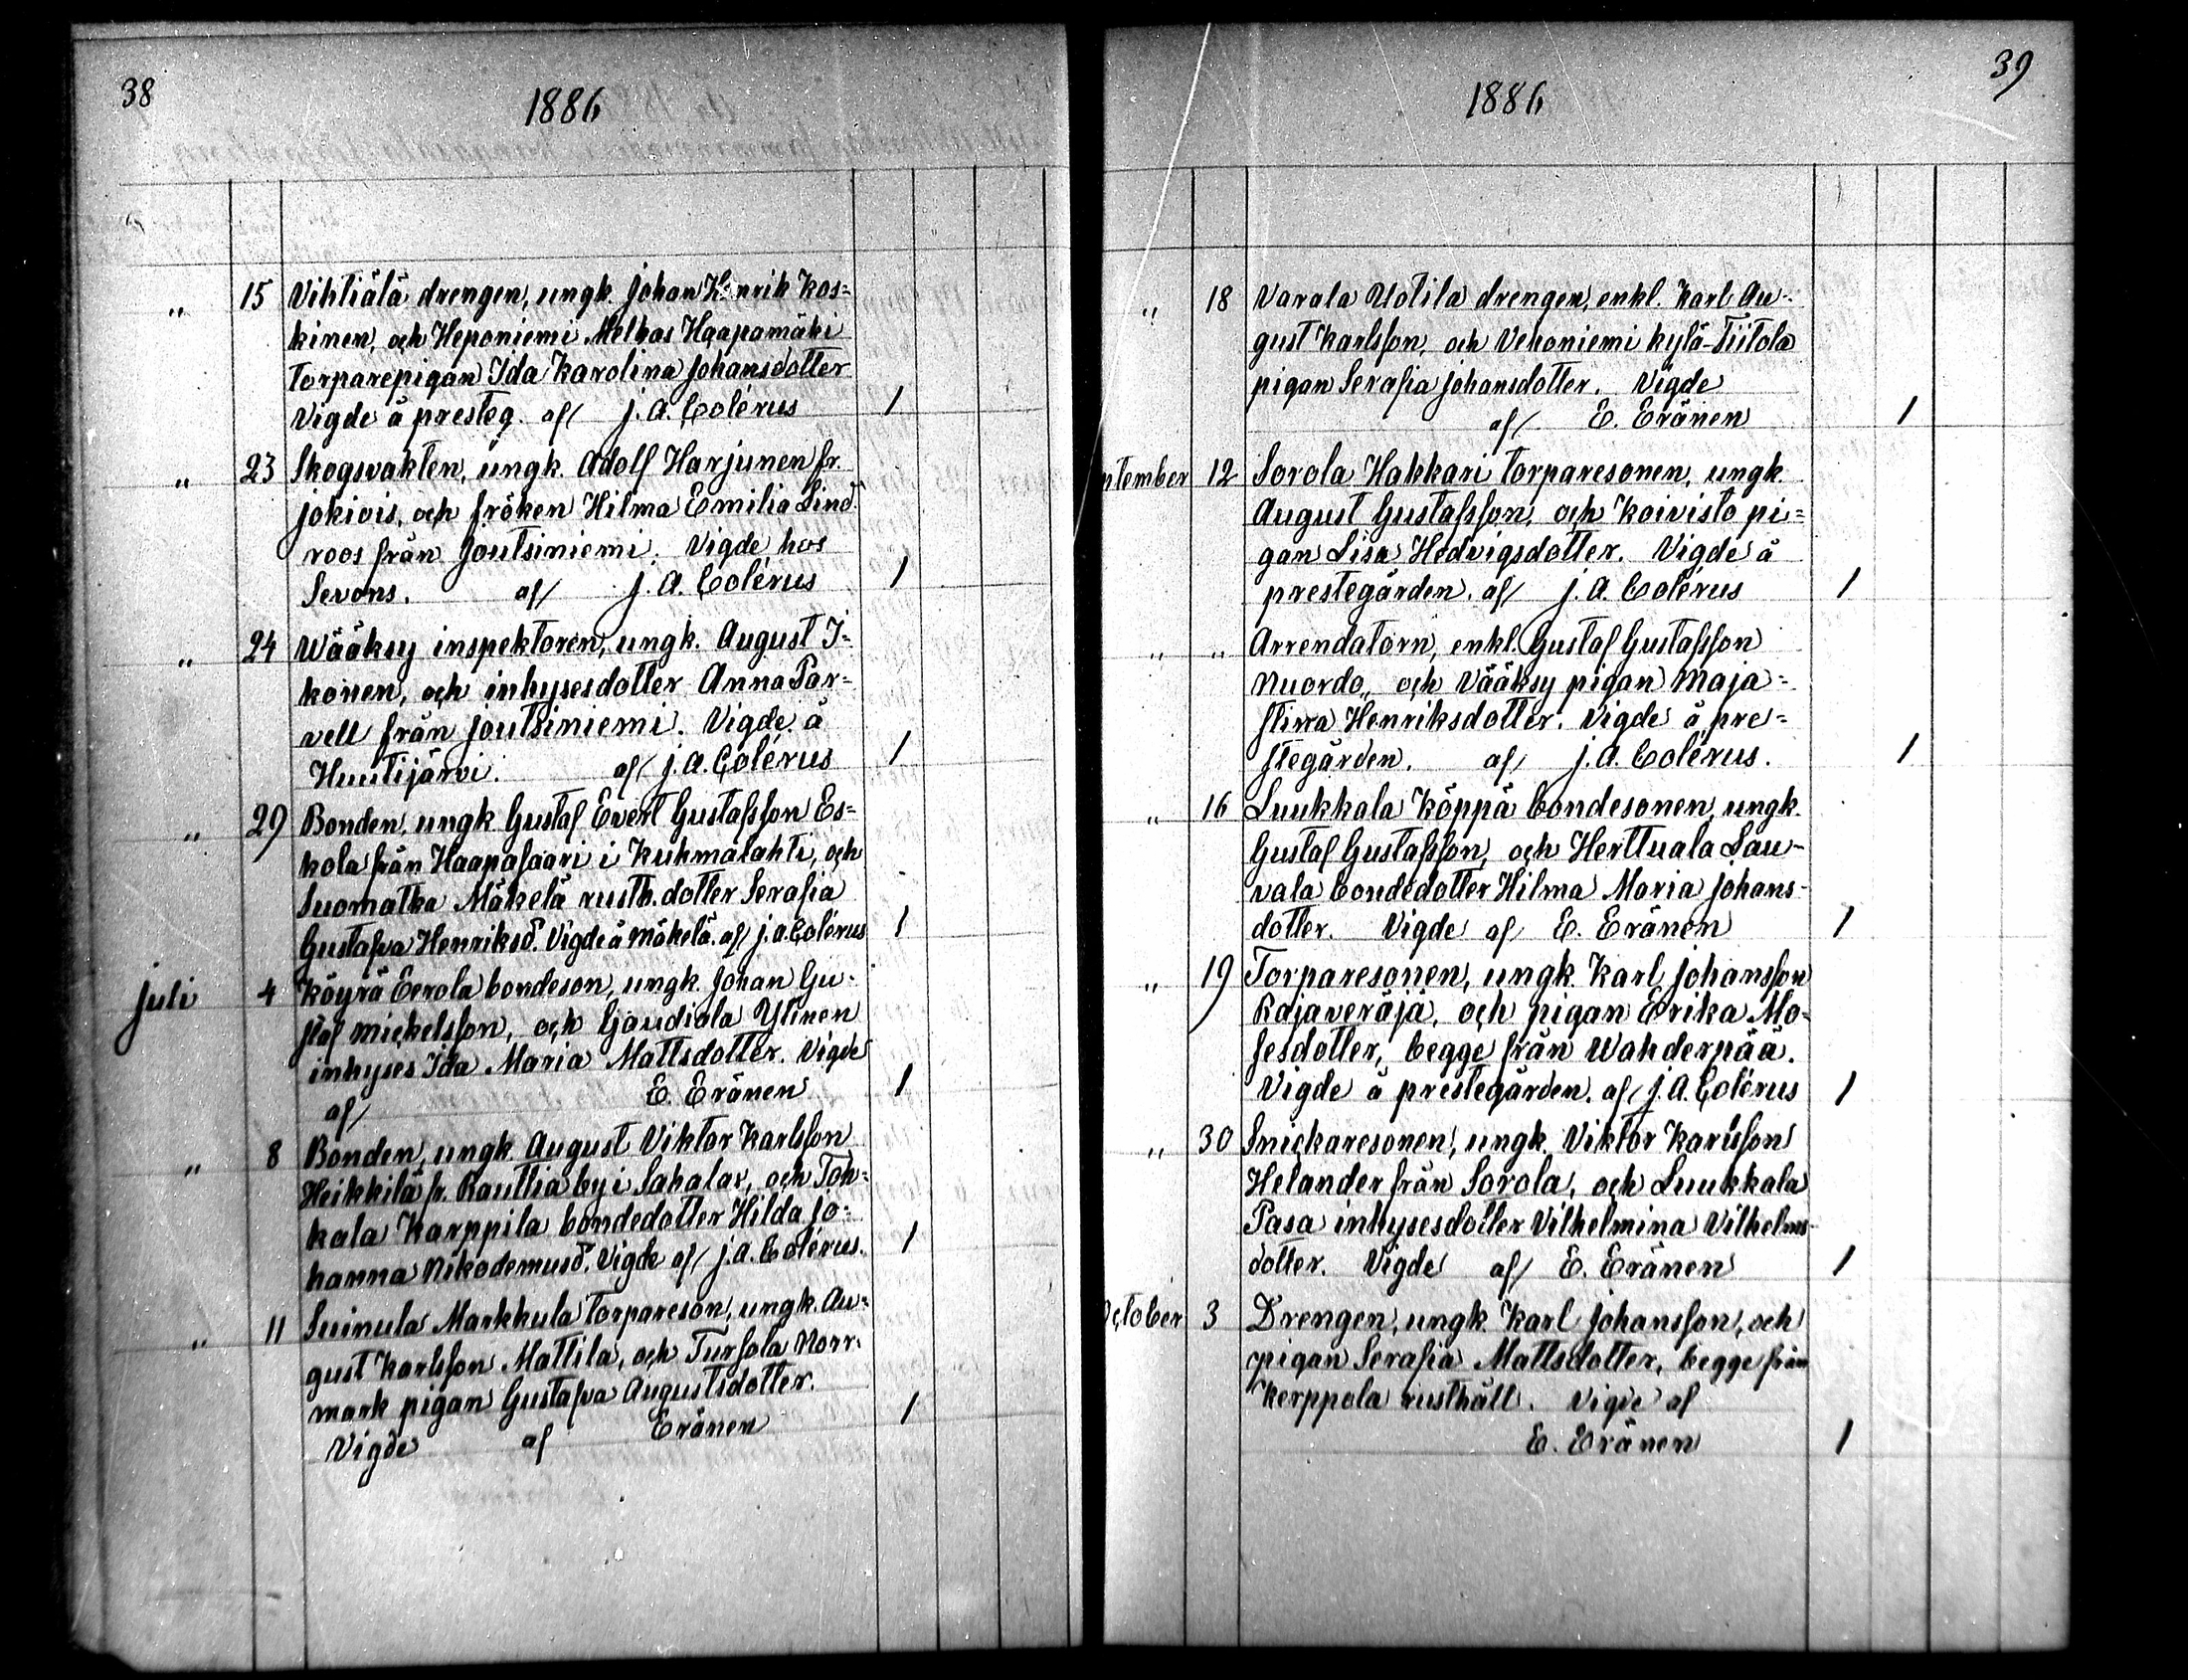 38
1886
„ 15 Vihtiälä drengen, ungk. Johan Henrik Kos=
kinen, och Heponiemi Melkas Haapamäki
Torparepigan Ida Karolina Johansdotter
Vigde å presteg. af J. A. Colérus 1
„ 23 Skogsvakten, ungk. Adolf Harjunen fr.
Jokiois, och fröken Hilma Emilia Lind
roos från Joutsiniemi. Vigde hos
Severs. af J. A. Colérus 1
„ 24 Wääksy inspektoren, ungk. August I=
konen, och inhysesdotter Anna Par=
vell från Joutsiniemi. Vigde å
Huutijärvi. af J. A. Colérus 1
„ 29 Bonden, ungk. Gustaf Evert Gustafsson Es=
kola från Haapasaari i Kuhmalahti, och
Suomatka Mäkelä rusth. dotter Serafia
Gustafva Henriksd. Vigde å Mäkelä. af J. A. Colérus 1
Juli 4 Köyrä Eerola bondeson, ungk. Johan Gu=
staf Mickelsson, och Gaudiala Ylinen
inhyses Ida Maria Mattsdotter. Vigde
af E. Eränen 1
„ 8 Bonden, ungk. August Viktor Karlsson
Heikkilä fr. Rauttia by i Sahalax, och Toh=
kala Karppila bondedotter Hilda Jo=
hanna Nikodemusd. Vigde af J. A. Colérus. 1
„ 11 Suinula Markkula torpareson, ungk. Au=
gust Karlsson Mattila, och Tursola Norr=
mark pigan Gustafva Augustsdotter.
Vigde af Eränen 1
39
1886
„ 18 Varala Uotila drengen, enkl. Karl Au=
gust Karlsson, och Vehoniemi kylä-Tiitola
pigan Serafia Johansdotter. Vigde
af E. Eränen 1
ptember 12 Sorola Hakkari torparesonen, ungk.
August Gustafsson, och Koivisto pi=
gan Lisa Hedvigsdotter. Vigde å
prestegården. af J. A. Colérus 1
„ „ Arrendatorn, enkl. Gustaf Gustafsson
Nuordo, och Vääksy pigan Maja=
stina Henriksdotter. Vigde å pre=
stegården. af J. A. Colérus. 1
„ 16 Luukkala Köppä bondesonen, ungk.
Gustaf Gustafsson, och Herttuala Lau=
vala bondedotter Hilma Maria Johans-
dotter. Vigde af E. Eränen 1
„ 19 Torparesonen, ungk. Karl Johansson
Rajaveräjä, och pigan Erika Mo=
sesdotter, begge från Wahderpää.
Vigde å prestegården. af J. A. Colérus 1
„ 30 Snickaresonen, ungk. Viktor Karlsson
Helander från Sorola, och Luukkala
Pasa inhysesdotter Vilhelmina Vilhelms-
dotter. Vigde af E. Eränen 1
October 3 Drengen, ungk. Karl Johansson, och
pigan Serafia Mattsdotter, begge från
Kerppola rusthåll. Vigde af
E. Eränen 1